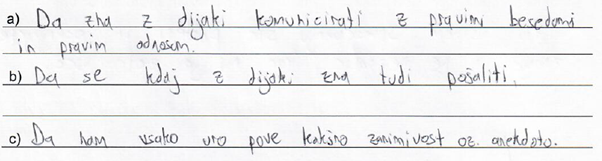 a) Da zna z dijaki komunicirati z pravimi besedami
in pravim odnosom.
b) Da se kdaj z dijaki zna tudi pošaliti.
c) Da nam vsako uro pove kakšno zanimivost oz. anekdoto.